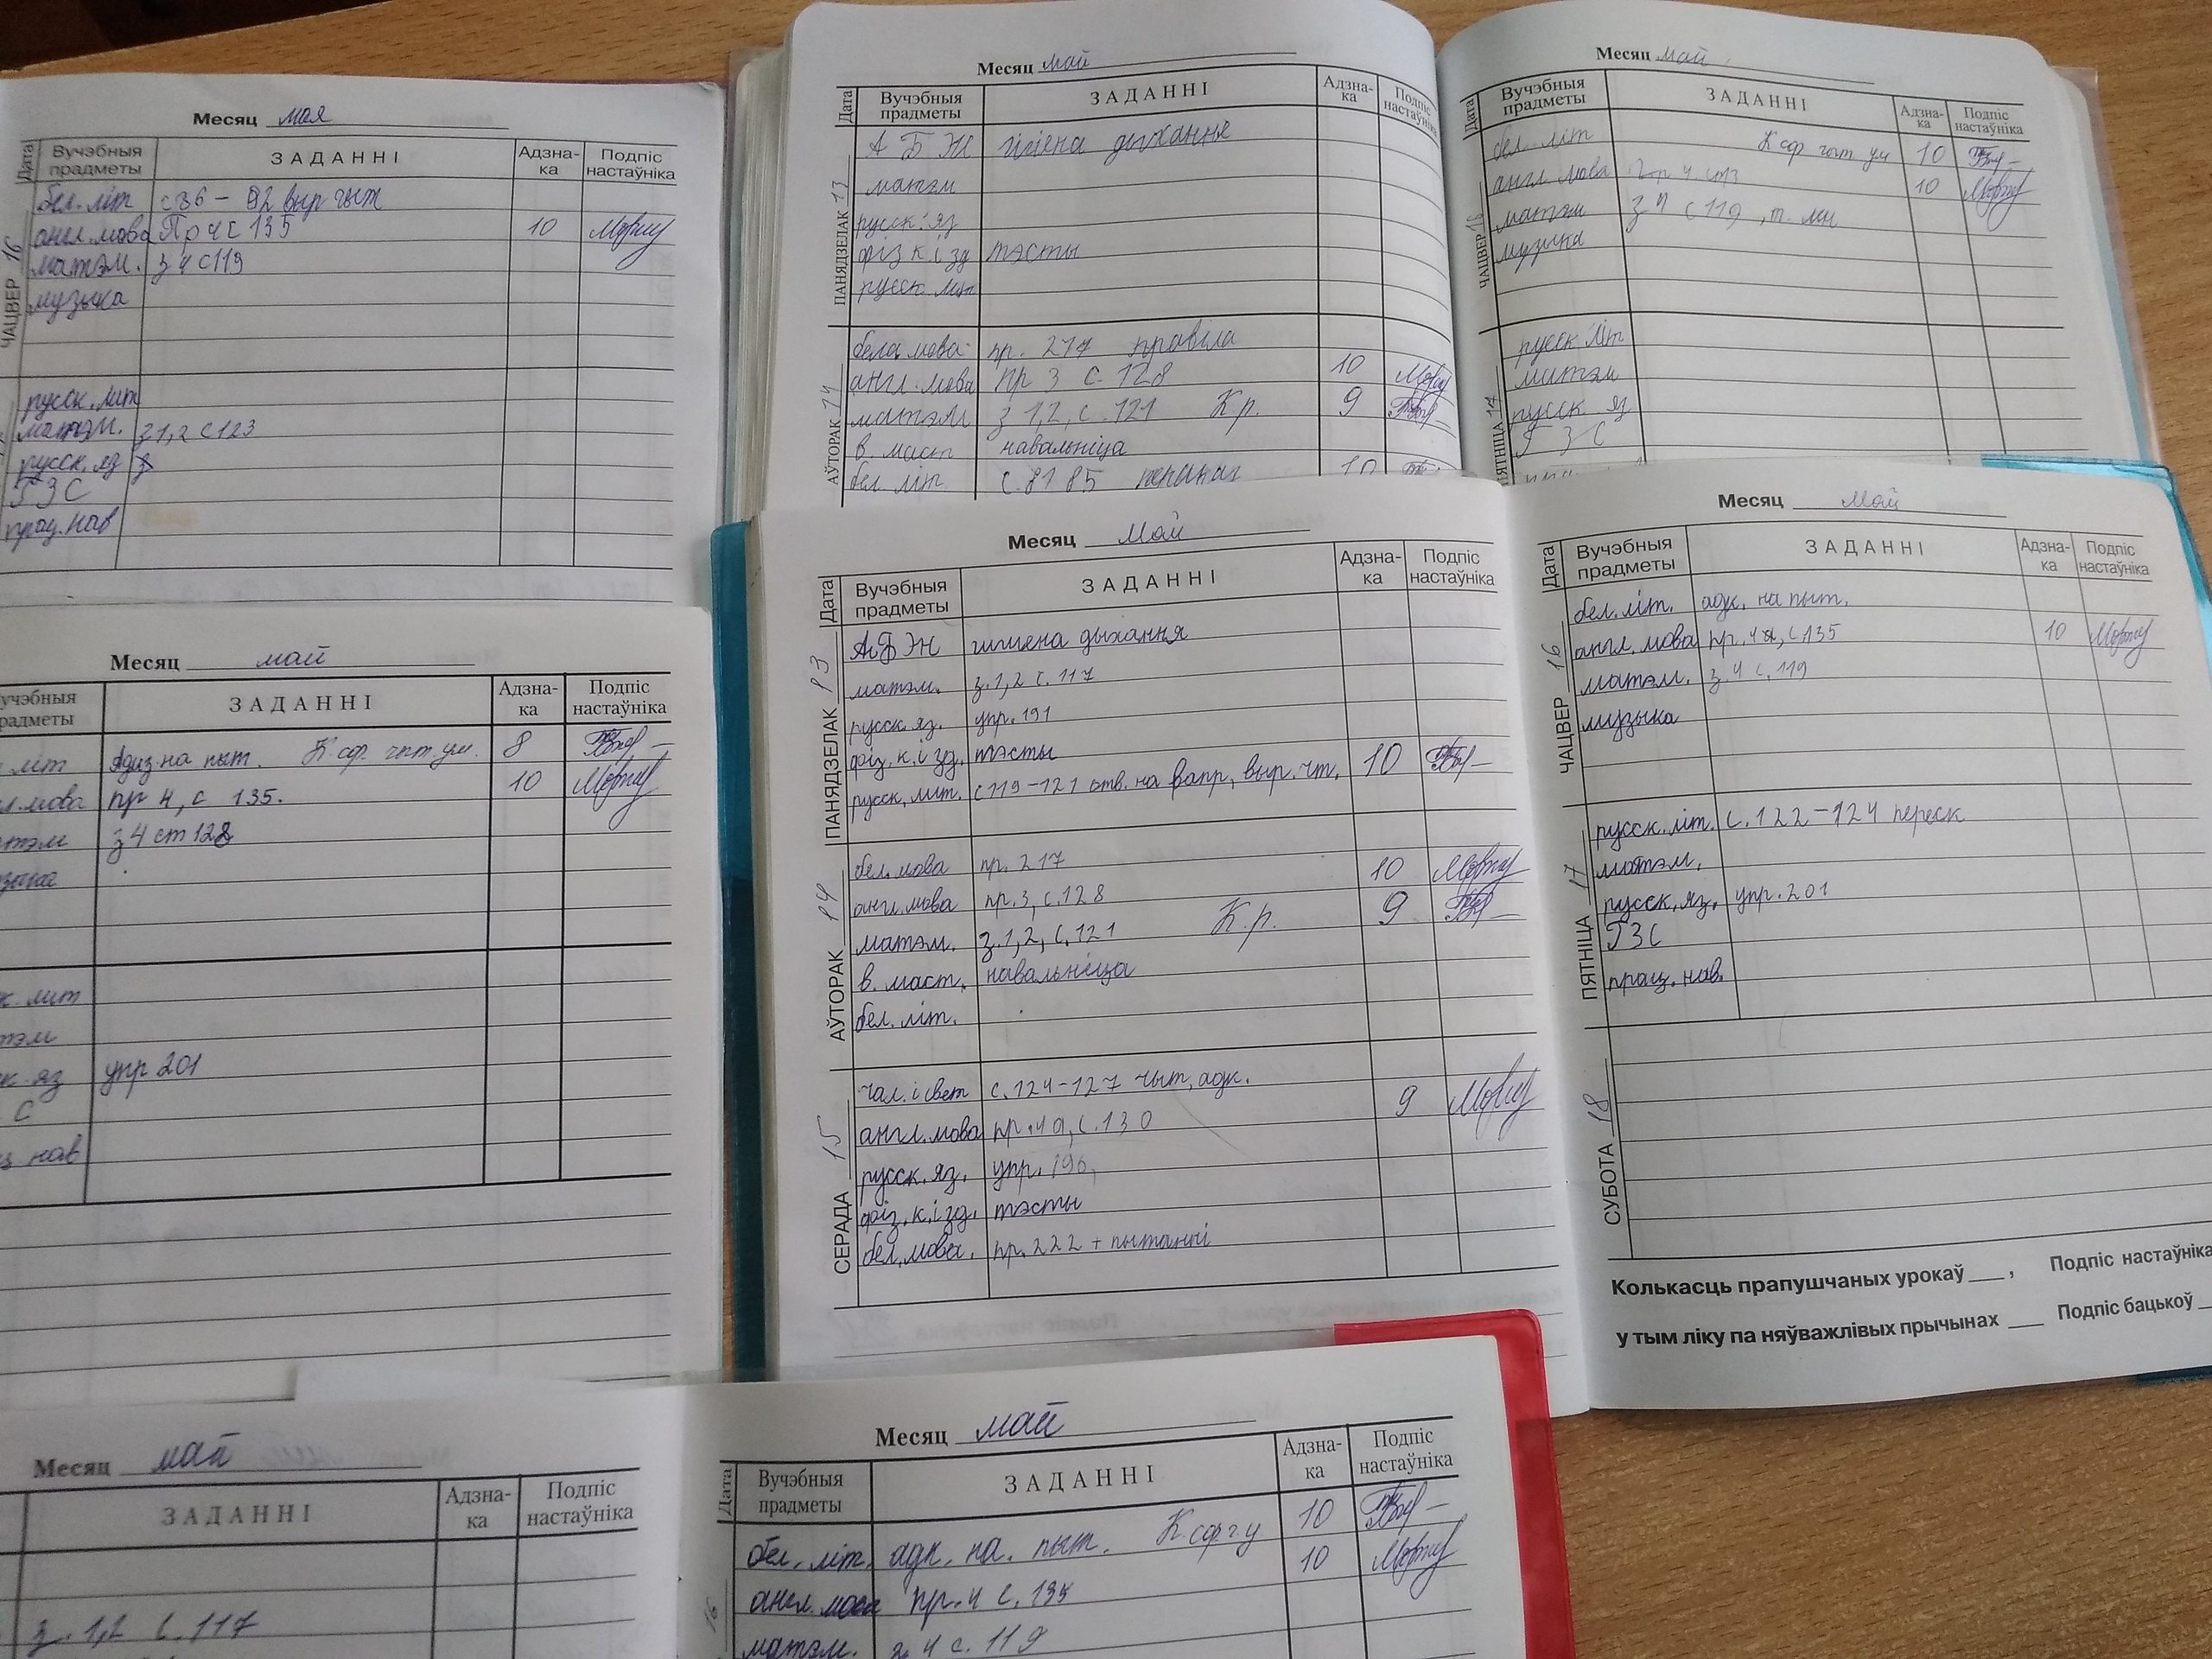 Месяц мая
Дата Вучэбныя прадметы ЗАДАННІ Адзна-ка Подпіс настаўніка
ЧАЦВЕР 16
бел. літ с 86 – 92 выр чыт
англ. мова Пр 4 с 135 10
матэм. з 4 с 119
музыка
русск. лит
матэм. з 1,2 с 123
русск. яз
ГЗС
прац. нав
Месяц май
Дата Вучэбныя прадметы ЗАДАННІ Адзна-ка Подпіс настаўніка
ПАНЯДЗЕЛАК 13
АБЖ гігіена дыхання
матэм
русск. яз
фіз к. і зд тэсты
русск лит
АЎТОРАК 14
бела мова пр. 217 правіла
англ. мова пр 3 с. 128 10
матэм з 1,2, с. 121 К р. 9
в. маст навальніца
бел. літ с. 81 85 10
Месяц май
Дата Вучэбныя прадметы ЗАДАННІ Адзна-ка Подпіс настаўніка
ЧАЦВЕР 16
бел. літ К сф чыт ум 10
англ. мова 10
матэм з 4 с 119
музыка
ПЯТНІЦА
русск літ
матэм
русск яз
ГЗС
Месяц май
учэбныя радметы ЗАДАННІ Адзна-ка Подпіс настаўніка
літ Адказ на пыт. К. сф. чыт. ум. 8
л. мова пр 4, с 135. 10
тэм з 4 ст 128
зыка
к. лит
тэм
к. яз упр 201
С
нав
Месяц Май
Дата Вучэбныя прадметы ЗАДАННІ Адзна-ка Подпіс настаўніка
ПАНЯДЗЕЛАК 13
АБЖ гигиена дыхання
матэм. з. 1, 2 с. 117
русск. яз. упр. 191
фіз. к. і зд. тэсты
русск. лит. с 119 – 121 отв. на вапр, выр. чт. 10
АЎТОРАК 14
бел. мова пр. 217 10
англ. мова пр. 3, с. 128 9
матэм. з. 1, 2, с. 121 К. р.
в. маст. навальніца
бел. літ.
СЕРАДА 15
чал. і свет с. 124 – 127 чыт, адк. 9
англ. мова пр. 4 а, с. 130
русск. яз. упр. 196,
фіз. к. і зд. тэсты
бел. мова. пр. 222 + пытанні
Месяц Май
Дата Вучэбныя прадметы ЗАДАННІ Адзна-ка Подпіс настаўніка
ЧАЦВЕР 16
бел. літ. адк. на пыт.
англ. мова пр. 4а, с. 135 10
матэм. з. 4 с. 119
музыка
ПЯТНІЦА 17
русск. літ. с. 122 – 124 переск
матэм.
русск. яз. упр. 201
ГЗС
прац. нав.
СУБОТА 18
Колькасць прапушчаных урокаў ___, Подпіс настаўніка
у тым ліку па няўважлівых прычынах ___ Подпіс бацькоў
Месяц май
ЗАДАННІ Адзна-ка Подпіс настаўніка
з. 1,2 с. 117
Месяц май
Дата Вучэбныя прадметы ЗАДАННІ Адзна-ка Подпіс настаўніка
16
бел. літ. адк. на. пыт. К. сф ч. у 10
англ. мова пр. 4 с. 135 10
матэм. з. 4 с. 119